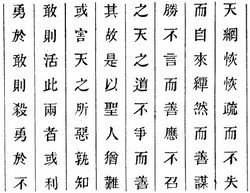 勇於敢則殺勇於不
敢則活此兩者或利
或害天之所惡孰知
其故是以聖人猶難
之天之道不爭而善
勝不言而善應不召
而自來繟然而善謀
天網恢恢疏而不失